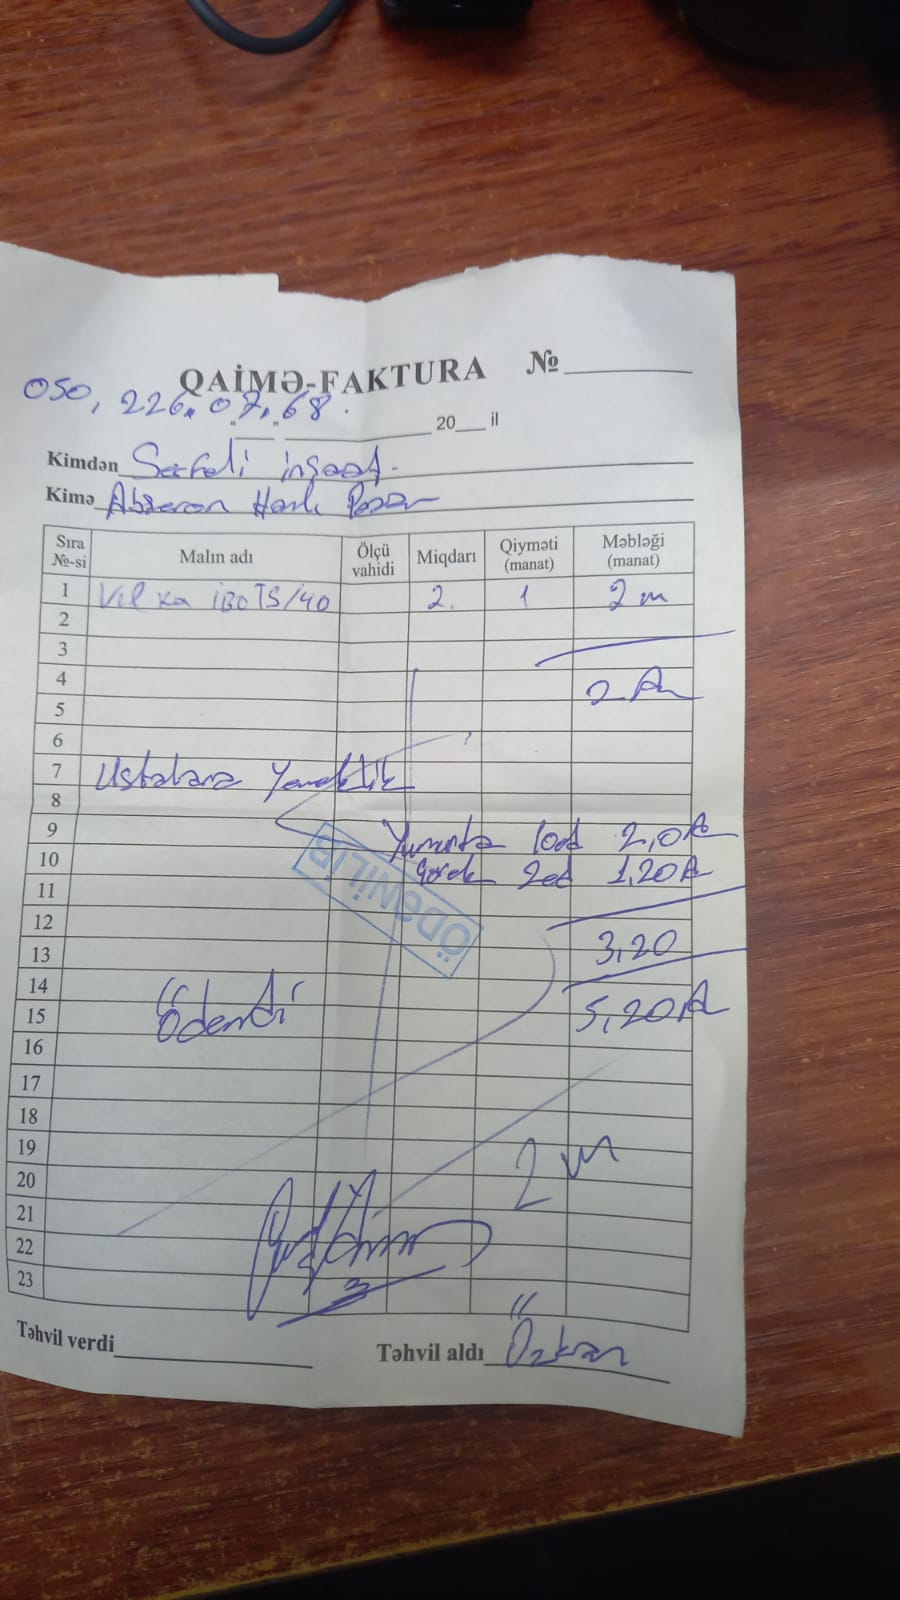 QAİMƏ-FAKTURA №
050, 226.07.68.
" " 20 il
Kimdən Sərfəli inşaat.
Kimə Abşeron Hərbi Bazar
Sıra №-si Malın adı Ölçü vahidi Miqdarı Qiyməti (manat) Məbləği (manat)
1 Vilka 2. 1 2 m
2
3
4 2 m
5
6
7 Ustalara Yeməklik
8
9 Yumurta 10əd 2,0 m
10 Çörək 2əd 1,20 m
11
12
13 3,20
14
15 Ödəndi 5,20 m
16
17
18
19
20 2 m
21
22
23
ÖDƏNİLİB
Təhvil verdi Təhvil aldı Özkan